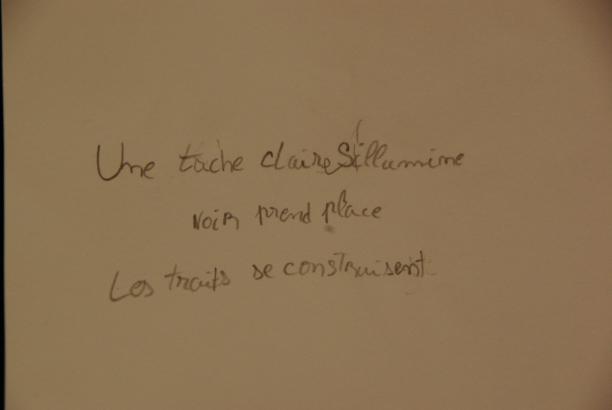 Une tache claire S'illumine
voir prend place
Les traits se construisent